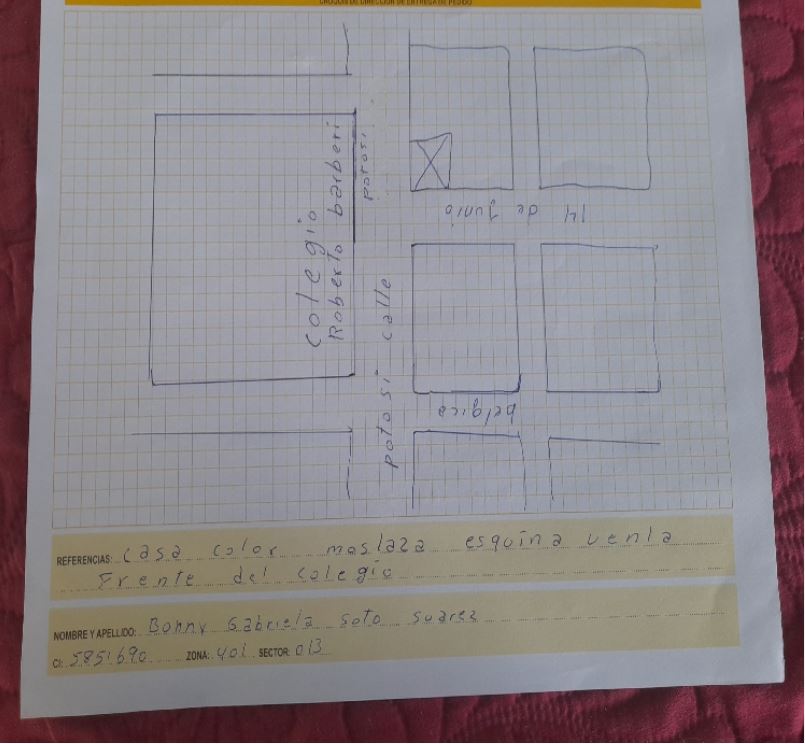 CROQUIS DE DIRECCIÓN DE ENTREGA DE PEDIDO
colegio
Roberto barberi
potosi
14 de Junio
potosi calle
belgica
REFERENCIAS: Casa color mostaza esquina venta
Frente del colegio
NOMBRE Y APELLIDO: Bonny Gabriela Soto Suarez
CI: 5851690 ZONA: 401 SECTOR: 013